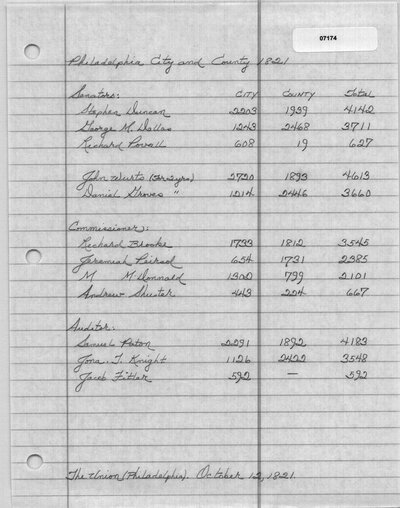 07174
Philadelphia City and County 1821
Senators: CITY COUNTY Total
Stephen Duncan 2203 1939 4142
George M. Dallas 1243 2468 3711
Richard Povall 608 19 627
John Wurts (for 2 yrs) 2720 1893 4613
Daniel Groves " 1214 2446 3660
Commissioner:
Richard Brooke 1733 1812 3545
Jeremiah Peirsol 654 1731 2385
M M Donnard 1302 799 2101
Andrew Shuster 443 224 667
Auditor:
Samuel Paton 2291 1892 4183
Jona. T. Knight 1126 2422 3548
Jacob Fitler 592 — 592
The Union (Philadelphia). October 12, 1821.